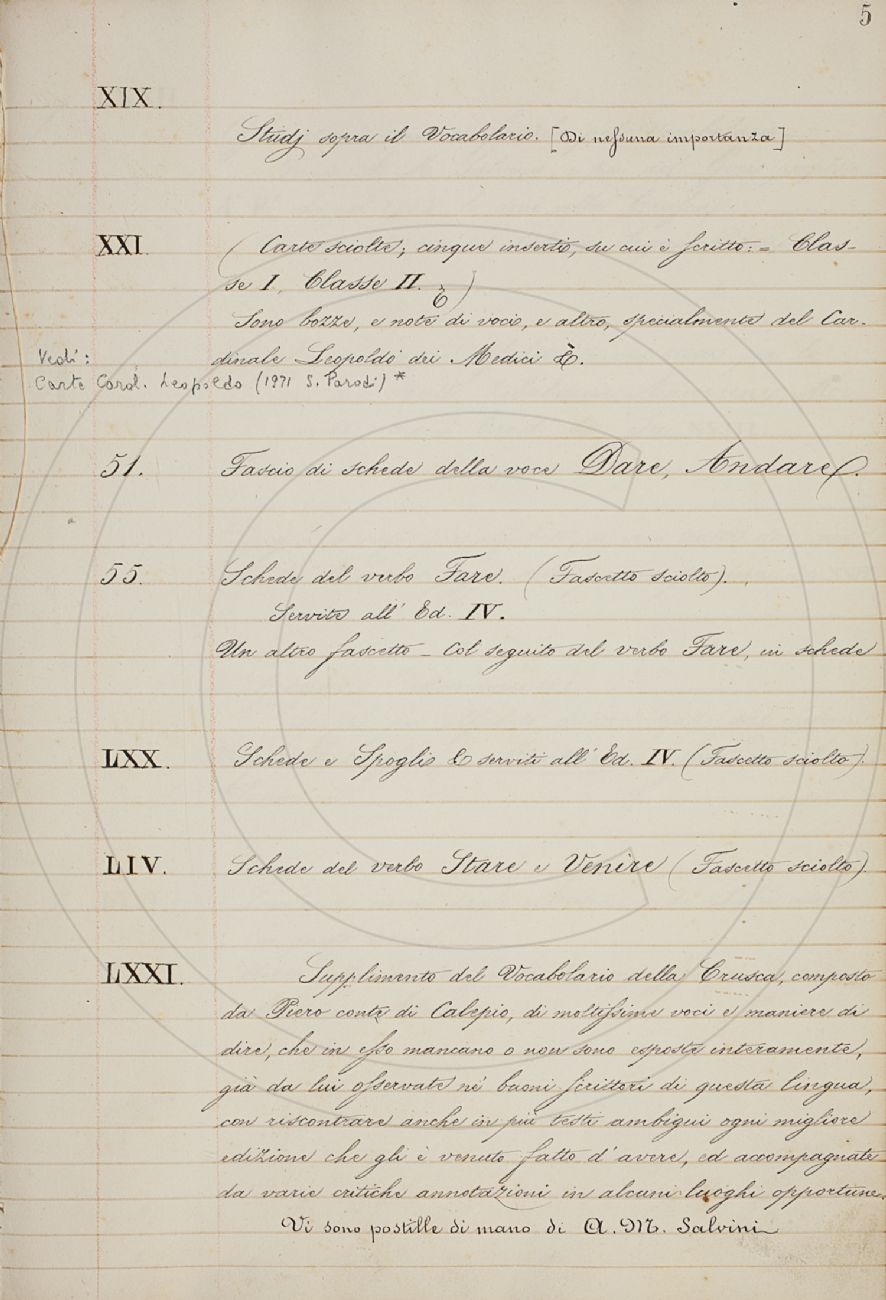 5
XIX.
Studj sopra il Vocabolario. [Di nessuna importanza]
XXI. ( Carte sciolte; cinque inserti, su cui è scritto: = Clas-
se I, Classe II. &)
Sono bozze, e note di voci, e altro, specialmente del Car-
Vedi:
dinale Leopoldo dei Medici &.
Carte Card. Leopoldo (1971 S. Parodi) *
51. Fascio di schede della voce Dare, Andare.
55. Schede del verbo Fare. (Fascetto sciolto).
Servite all' Ed. IV.
Un altro fascetto - Col seguito del verbo Fare, in schede
LXX. Schede e Spogli & serviti all' Ed. IV. (Fascetto sciolto)
LIV. Schede del verbo Stare e Venire (Fascetto sciolto)
LXXI. Supplimento del Vocabolario della Crusca, composto
da Piero conte di Calepio, di moltissime voci e maniere di
dire, che in esso mancano o non sono esposte interamente,
già da lui osservate ne' buoni scrittori di questa lingua,
con riscontrare anche in più testi ambigui ogni migliore
edizione che gli è venuto fatto d'avere, ed accompagnate
da varie critiche annotazioni in alcuni luoghi opportune.
Vi sono postille di mano di A. M. Salvini